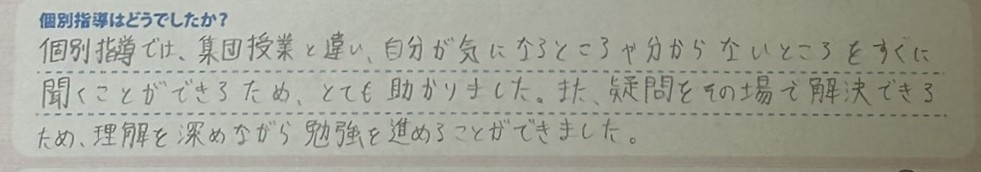 個別指導はどうでしたか？
個別指導では、集団授業と違い、自分が気になるところや分からないところをすぐに
聞くことができるため、とても助かりました。また、疑問をその場で解決できる
ため、理解を深めながら勉強を進めることができました。